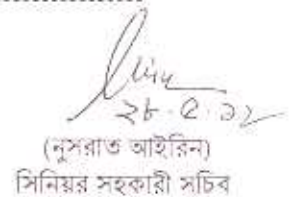 ২৮.৫.১২
(নুসরাত আইরিন)
সিনিয়র সহকারী সচিব